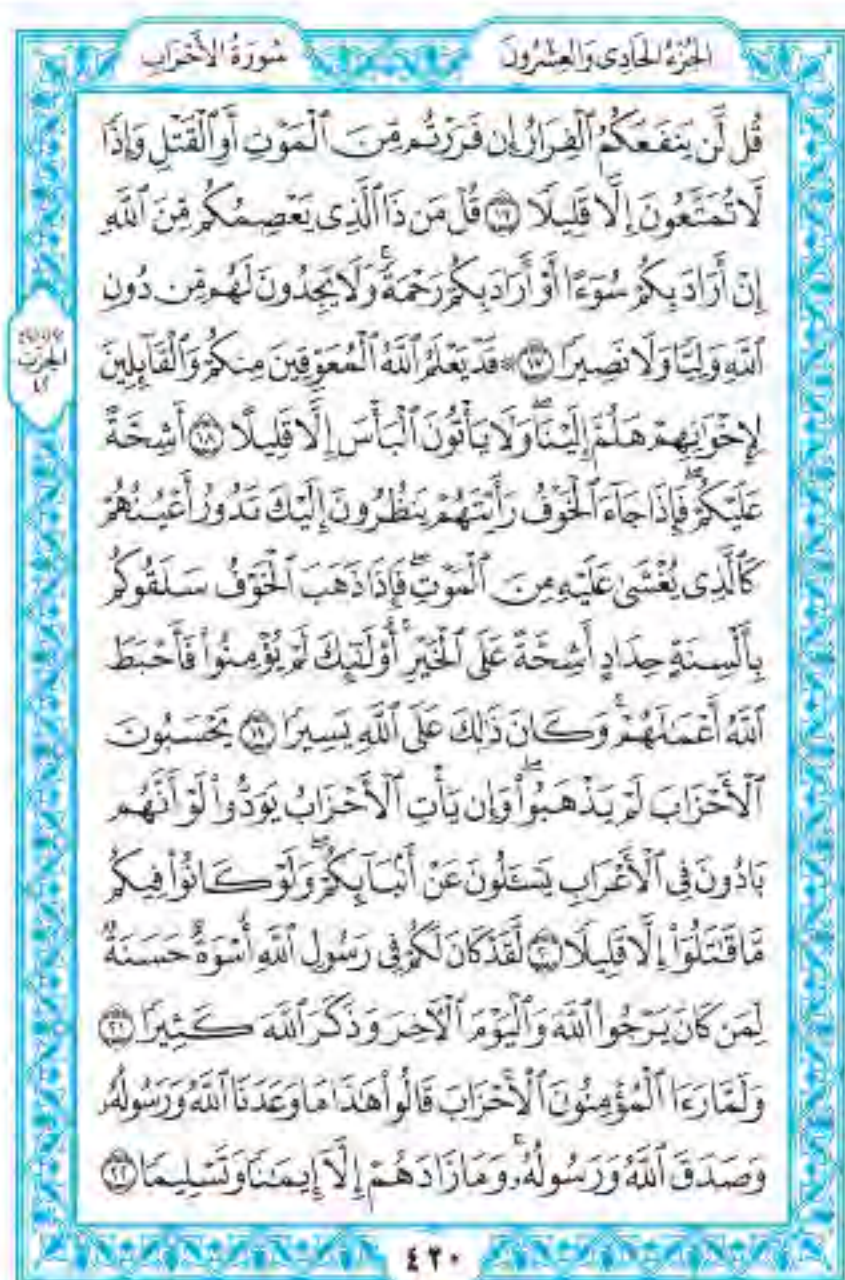 الجُزْءُ الحَادِى وَالعِشْرُونَ
سُورَةُ الأَحْزَابِ
قُل لَّن يَنفَعَكُمُ ٱلْفِرَارُ إِن فَرَرْتُم مِّنَ ٱلْمَوْتِ أَوِ ٱلْقَتْلِ وَإِذًا
لَّا تُمَتَّعُونَ إِلَّا قَلِيلًا ١٦ قُلْ مَن ذَا ٱلَّذِى يَعْصِمُكُم مِّنَ ٱللَّهِ
إِنْ أَرَادَ بِكُمْ سُوٓءًا أَوْ أَرَادَ بِكُمْ رَحْمَةً ۚ وَلَا يَجِدُونَ لَهُم مِّن دُونِ
ٱللَّهِ وَلِيًّا وَلَا نَصِيرًا ١٧ ۞ قَدْ يَعْلَمُ ٱللَّهُ ٱلْمُعَوِّقِينَ مِنكُمْ وَٱلْقَآئِلِينَ
الحِزْب
٤٢
لِإِخْوَٰنِهِمْ هَلُمَّ إِلَيْنَا ۖ وَلَا يَأْتُونَ ٱلْبَأْسَ إِلَّا قَلِيلًا ١٨ أَشِحَّةً
عَلَيْكُمْ ۖ فَإِذَا جَآءَ ٱلْخَوْفُ رَأَيْتَهُمْ يَنظُرُونَ إِلَيْكَ تَدُورُ أَعْيُنُهُمْ
كَٱلَّذِى يُغْشَىٰ عَلَيْهِ مِنَ ٱلْمَوْتِ ۖ فَإِذَا ذَهَبَ ٱلْخَوْفُ سَلَقُوكُم
بِأَلْسِنَةٍ حِدَادٍ أَشِحَّةً عَلَى ٱلْخَيْرِ ۚ أُو۟لَٰٓئِكَ لَمْ يُؤْمِنُوا۟ فَأَحْبَطَ
ٱللَّهُ أَعْمَٰلَهُمْ ۚ وَكَانَ ذَٰلِكَ عَلَى ٱللَّهِ يَسِيرًا ١٩ يَحْسَبُونَ
ٱلْأَحْزَابَ لَمْ يَذْهَبُوا۟ ۖ وَإِن يَأْتِ ٱلْأَحْزَابُ يَوَدُّوا۟ لَوْ أَنَّهُم
بَادُونَ فِى ٱلْأَعْرَابِ يَسْـَٔلُونَ عَنْ أَنۢبَآئِكُمْ ۖ وَلَوْ كَانُوا۟ فِيكُم
مَّا قَٰتَلُوٓا۟ إِلَّا قَلِيلًا ٢٠ لَّقَدْ كَانَ لَكُمْ فِى رَسُولِ ٱللَّهِ أُسْوَةٌ حَسَنَةٌ
لِّمَن كَانَ يَرْجُوا۟ ٱللَّهَ وَٱلْيَوْمَ ٱلْءَاخِرَ وَذَكَرَ ٱللَّهَ كَثِيرًا ٢١
وَلَمَّا رَءَا ٱلْمُؤْمِنُونَ ٱلْأَحْزَابَ قَالُوا۟ هَٰذَا مَا وَعَدَنَا ٱللَّهُ وَرَسُولُهُۥ
وَصَدَقَ ٱللَّهُ وَرَسُولُهُۥ ۚ وَمَا زَادَهُمْ إِلَّآ إِيمَٰنًا وَتَسْلِيمًا ٢٢
٤٢٠